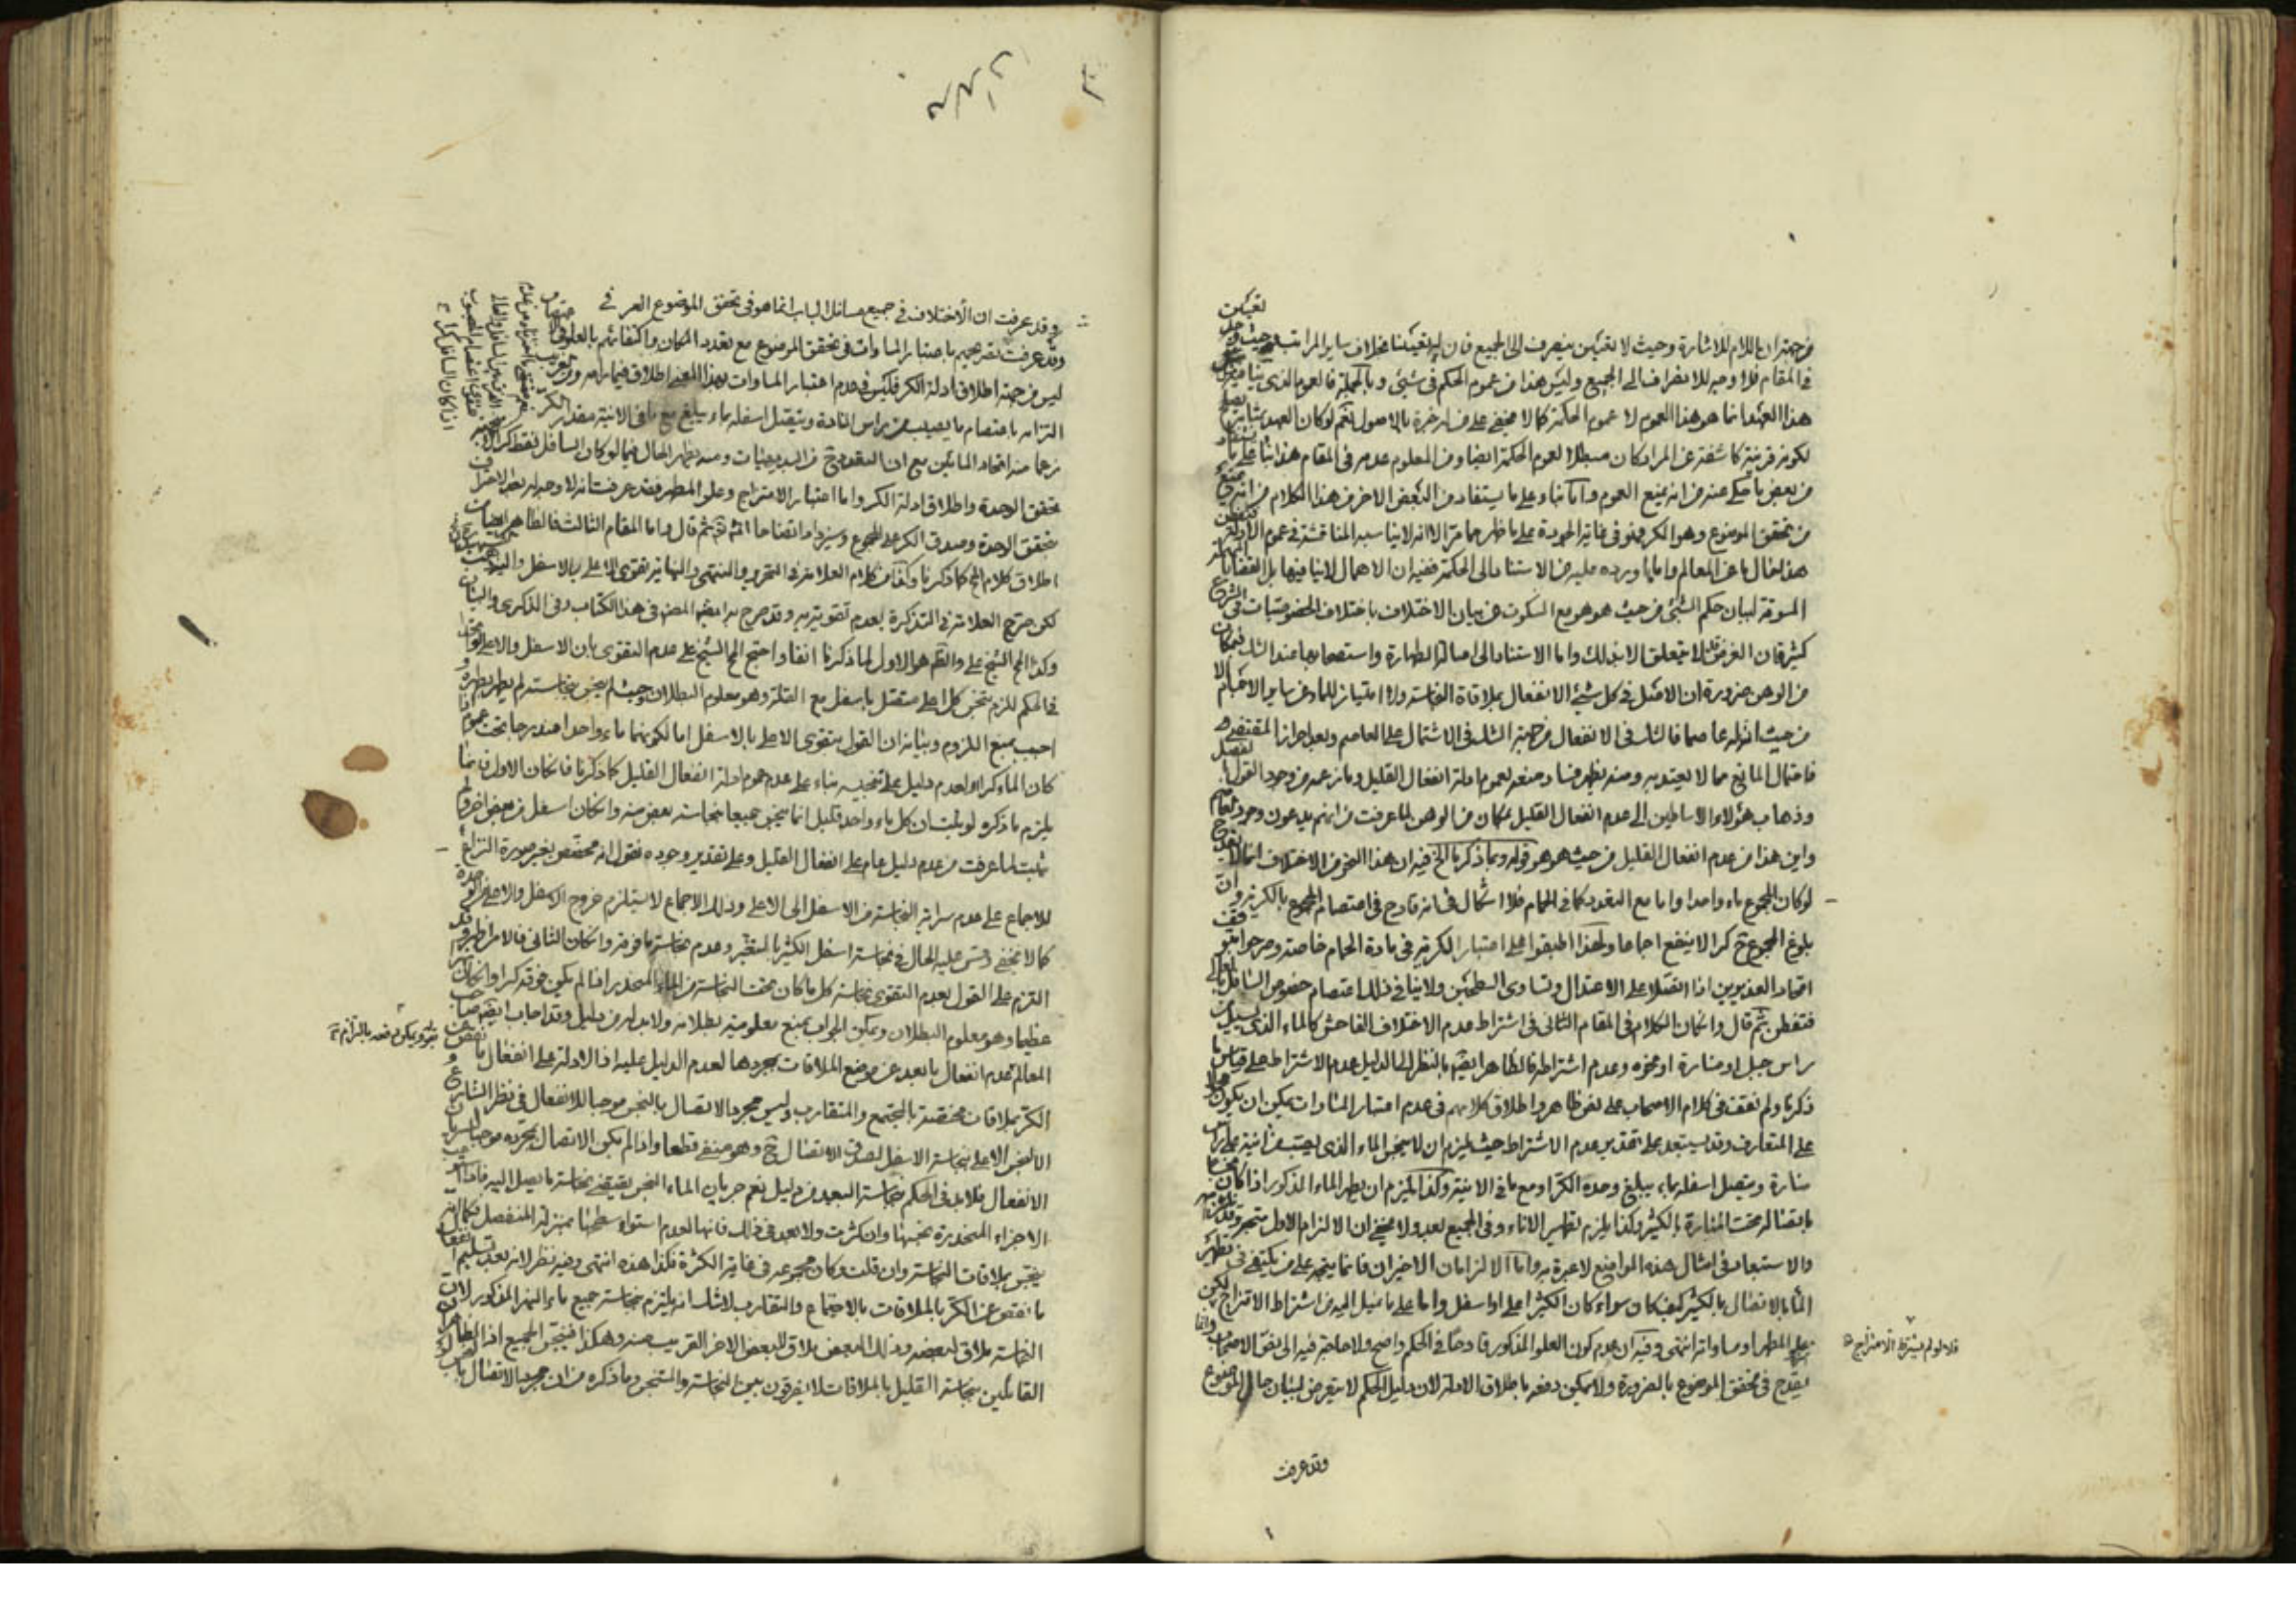 من جهة ان اللام للاشارة وحيث لا تعين ينصرف الى الجميع فان له تعينا بخلاف ساير المراتب
في المقام فلا وجه للانصراف الى الجميع وليس هذا من عموم الحكم في شيئ وبالجملة فالعموم الذي
هذا العهد انما هو هذا العموم لا عموم الحكمة كما لا يخفى على من له خبرة بالاصول نعم لو كان العهد
لكونه قرينة كاشفة عن المراد كان مبطلا لعموم الحكمة ايضا ومن المعلوم عدمه في المقام هذا بناء على
من بعض ما حكي عنه من انه يمنع العموم واما بناء على ما يستفاد من البعض الاخر من هذا الكلام من انه يمنع
من تحقق الموضوع وهو الكر فهو في غاية الجودة على ما ظهر مما مر الا انه لا يناسب المناقشة في عموم الادلة
هذا لغال ما عن المعالم واما ما اورده عليه من الاستناد الى الحكمة ففيه ان الاهمال لا ينافيها بل القضايا
المسوقة لبيان حكم الشيئ من حيث هو هو مع السكوت عن بيان الاختلاف باختلاف الخصوصيات في الشرع
كثير فان الغرض لا يتعلق الا بذلك واما الاستناد الى اصالة الطهارة واستصحابها عند الشك فبمكان
من الوهن ضرورة ان الاصل في كل شيئ الانفعال بملاقاة النجاسة ولا امتياز للماء عن ساير الاجسام الا
من حيث ان له عاصما فالشك في الانفعال من جهة الشك في الاشتمال على العاصم وبعد احراز المقتضي
فاحتمال المانع مما لا يعتد به ومنه يظهر فساد منعه لعموم ادلة انفعال القليل وما زعمه من وجود القول
وذهاب هؤلاء الاساطين الى عدم انفعال القليل بمكان من الوهن لما عرفت من انهم يدعون وجود
واين هذا من عدم انفعال القليل من حيث هو هو قوله وبما ذكرنا الخ فيه ان هذا النحو من الاختلاف انما
لو كان المجموع ماء واحدا واما مع التعدد كما في الحمام فلا اشكال في انه قادح في اعتصام المجموع بالكرية وان
بلوغ المجموع ح كرا لا ينفع اجماعا ولهذا اطبقوا على اعتبار الكرية في مادة الحمام خاصة وصرحوا
اتحاد الغديرين اذا اتصلا على الاعتدال وتساوى السطحين ولا ينافي ذلك اعتصام خصوص السافل بالعالي
فتفطن ثم قال وان كان الكلام في المقام الثاني في اشتراط عدم الاختلاف الفاحش كالماء الذي يسيل من
راس جبل او منارة او نحوه وعدم اشتراطه فالظاهر ايضا بالنظر الى الدليل عدم الاشتراط على قياس ما
ذكرنا ولم نقف في كلام الاصحاب على نص ظاهر واطلاق كلامهم في عدم اعتبار المساوات يمكن ان يكون
على المتعارف وقد يستبعد على تقدير عدم الاشتراط حيث يلزم ان لا ينجس الماء الذي يصب من انية على راس
منارة ويتصل اسفله بماء يبلغ وحده الكر او مع ما في الانية وكذا يلزم ان يطهر الماء المذكور اذا كان نجسا
باتصاله تحت المنارة بالكثير وكذا يلزم تطهير الاناء وفي الجميع بعد ولا يخفى ان الالزام الاول متجه
والاستبعاد في امثال هذه المواضع لا عبرة به واما الالزامان الاخيران فانما يتجه على من يكتفي في تطهير
الماء بالاتصال بالكثير كيف كان سواء كان الكثير اعلى او اسفل واما على ما نميل اليه من اشتراط الامتزاج
علو المطهر او مساواته انتهى وفيه ان عدم كون العلو المذكور قادحا في الحكم واضح ولا حاجة فيه الى نص الاصحاب وانما
يقدح في تحقق الموضوع بالضرورة ولا يمكن دفعه باطلاق الادلة لان دليل الحكم لا يتعرض لبيان حال الموضوع
فلا ولو لم يشترط الامتزاج
وقد عرفت
وقد عرفت ان الاختلاف في جميع مسائل الباب انما هو في تحقق الموضوع
وقد عرفت تصريحهم باعتبار المساوات في تحقق الموضوع مع تعدد المكان واكتفائهم بالعلو
ليس من جهة اطلاق ادلة الكر فليس في عدم اعتبار المساوات بهذا المعنى اطلاق فيما رامه
التزامه باعتصام ما يصب من راس المنارة ويتصل اسفله بماء يبلغ مع ما في الانية مقدار الكر
زعما منه اتحاد المائين مع ان التعدد ح من البديهيات ومنه يظهر الحال فيما لو كان السافل فقط كرا
تحقق الوحدة واطلاق ادلة الكر واما اعتبار الامتزاج وعلو المطهر فقد عرفت انه لا وجه له بعد الاعتراف
بتحقق الوحدة وصدق الكر على المجموع وسيزداد اتضاحا انش تعالى ثم قال واما المقام الثالث فالظاهر
اطلاق كلام المح كما ذكرنا وكذا من كلام العلامة في التحرير والمنتهى والنهاية تقوى الاعلى بالاسفل
لكن صرح العلامة في التذكرة بعدم تقويته به وقد صرح به ايضا المص في هذا الكتاب وفي الذكرى والبيان
وكذا المح الشيخ علي والظ هو الاول لما ذكرنا انفا واحتج المح الشيخ علي عدم التقوى بان الاسفل والاعلى لو اتحدا
في الحكم للزم تنجس كل اعلى متصل باسفل مع القلة وهو معلوم البطلان وحيث لم ينجس بنجاسته لم يطهر بطهره و
اجيب بمنع اللزوم وبيانه ان القول بتقوى الاعلى بالاسفل اما لكونهما ماء واحدا مندرجا تحت عموم اذا
كان الماء كرا او لعدم دليل على تنجيسه بناء على عدم عموم ادلة انفعال القليل كما ذكرنا فان كان الاول فانما
يلزم ما ذكره لو ثبت ان كل ماء واحد قليل انما ينجس جميعا بنجاسة بعض منه وان كان اسفل من بعض اخر ولم
يثبت لما عرفت من عدم دليل عام على انفعال القليل وعلى تقدير وجوده نقول انه مخصص بغير صورة النزاع
للاجماع على عدم سراية النجاسة من الاسفل الى الاعلى وذلك الاجماع لا يستلزم خروج الاسفل والاعلى من الوحدة
كما لا يخفى وقس عليه الحال في نجاسة اسفل الكثير بالتغير وعدم نجاسة ما فوقه وان كان الثاني فالامر اظهر وقد
التزم على القول بعدم التقوى نجاسة كل ما كان تحت النجاسة من الماء المنحدر اذا لم يكن فوقه كرا وان كان نهرا
عظيما وهو معلوم البطلان ويمكن الجواب بمنع معلومية بطلانه ولا بد له من دليل وقد اجاب ايضا صاحب
المعالم بعدم انفعال ما بعد عن موضع الملاقات بمجردها لعدم الدليل عليه اذ الادلة على انفعال ما نقص عن
الكر بملاقات مختصة بالمجتمع والمتقارب وليس مجرد الاتصال بالنجس موجبا للانفعال في نظر الشارع و
الا لنجس الاعلى بنجاسة الاسفل لصدق الاتصال ح وهو منفي قطعا واذا لم يكن الاتصال بمجرده موجبا لسريان
الانفعال فلا بد في الحكم بنجاسة البعيد من دليل نعم جريان الماء النجس يقتضي نجاسة ما يصل اليه فاذا استوعب
الاجزاء المنحدرة نجسها وان كثرت ولا بعد في ذلك فانها لعدم استواء سطحها بمنزلة المنفصل فكما انه
ينجس بملاقات النجاسة وان قلت وكان مجموعه في غاية الكثرة فكذا هذه انتهى وفيه نظر لانه بعد تسليم انفعال
ما نقص عن الكر بالملاقات بالاجتماع والتقارب لا شك انه يلتزم نجاسة جميع ماء النهر المذكور لان
النجاسة ملاق لبعضه وذلك البعض ملاق للبعض الاخر القريب منه وهكذا فينجس الجميع اذ الظاهر ان
القائلين بنجاسة القليل بالملاقات لا يفرقون بين النجاسة والمتنجس وما ذكره من ان مجرد الاتصال